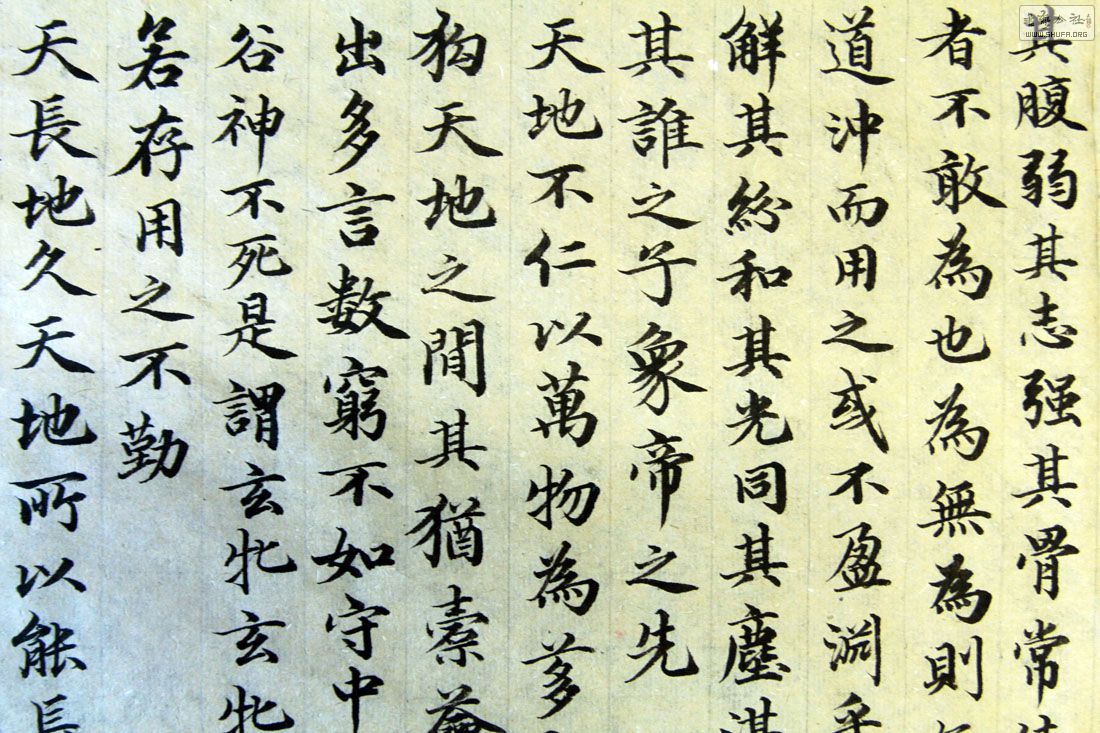 其腹弱其志强其骨常
者不敢為也為無為則
道沖而用之或不盈淵乎
解其紛和其光同其塵湛
其誰之子象帝之先
天地不仁以萬物為芻
狗天地之間其猶橐籥
出多言數窮不如守中
谷神不死是謂玄牝玄牝
若存用之不勤
天長地久天地所以能長
WWW.SHUFA.ORG